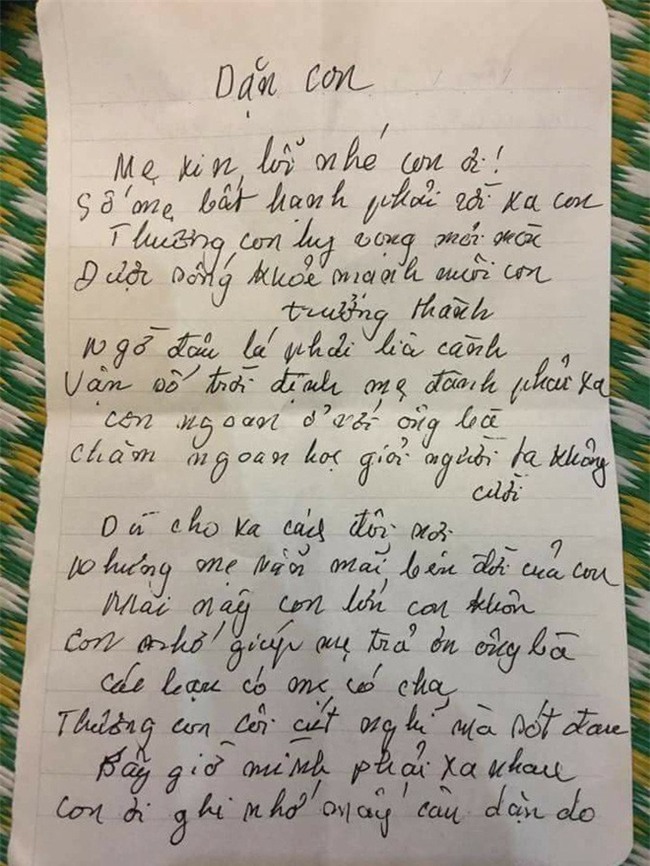 Dặn con
Mẹ xin lỗi nhé con ơi!
Số mẹ bất hạnh phải rời xa con
Thương con hy vọng mỏi mòn
Được sống khỏe mạnh nuôi con
trưởng thành
Ngờ đâu lá phải lìa cành
Vận số trời định mẹ đành phải xa
Con ngoan ở với ông bà
Chăm ngoan học giỏi người ta không
cười
Dù cho xa cách đôi nơi
Nhưng mẹ vẫn mãi bên đời của con
Mai này con lớn con khôn
Con nhớ giúp mẹ trả ơn ông bà
Các bạn có mẹ có cha
Thương con côi cút nghĩ mà xót đau
Bây giờ mình phải xa nhau
Con ơi ghi nhớ mấy câu dặn dò